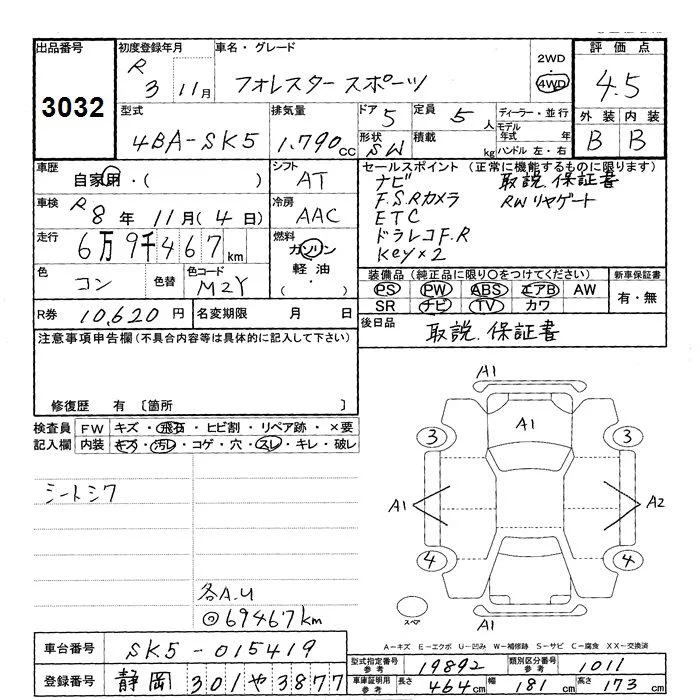 出品番号 初度登録年月 車名・グレード 2WD 評価点
3032 R 3 11月 フォレスター スポーツ 4WD 4.5
型式 排気量 ドア 5 定員 5人 ディーラー・並行 外装 内装
4BA-SK5 1,790cc 形状 SW 積載 kg モデル年式 年 B B
ハンドル 左・右
車歴 自家用・( ) シフト AT セールスポイント (正常に機能するものに限ります)
車検 R8年 11月(4日) 冷房 AAC ナビ 取説.保証書
F.S.Rカメラ RWリヤゲート
走行 6万9千467km 燃料 ガソリン ETC
軽油・( ) ドラレコF.R
色 コン 色替 色コード M2Y Key×2
装備品 (純正品に限り○をつけてください) 新車保証書
PS PW ABS エアB AW 有・無
R券 10,620円 名変期限 月 日 SR ナビ TV カワ
注意事項申告欄(不具合内容等は具体的に記入して下さい) 後日品 取説.保証書
修復歴 有 〔箇所 〕
検査員 FW キズ・飛石・ヒビ割・リペア跡・×要
記入欄 内装 キズ・汚レ・コゲ・穴・スレ・キレ・破レ
A1
A1
3 3
シートシワ
A1 A2
4 4
各A.U
◎69467km
スペア A1
A-キズ E-エクボ U-凹み W-補修跡 S-サビ C-腐食 XX-交換済
車台番号 SK5-015419 型式指定番号 参考 19892 類別区分番号 参考 1011
登録番号 静岡 301 や 3877 車庫証明用 参考 長さ 464cm 幅 181cm 高さ 173cm